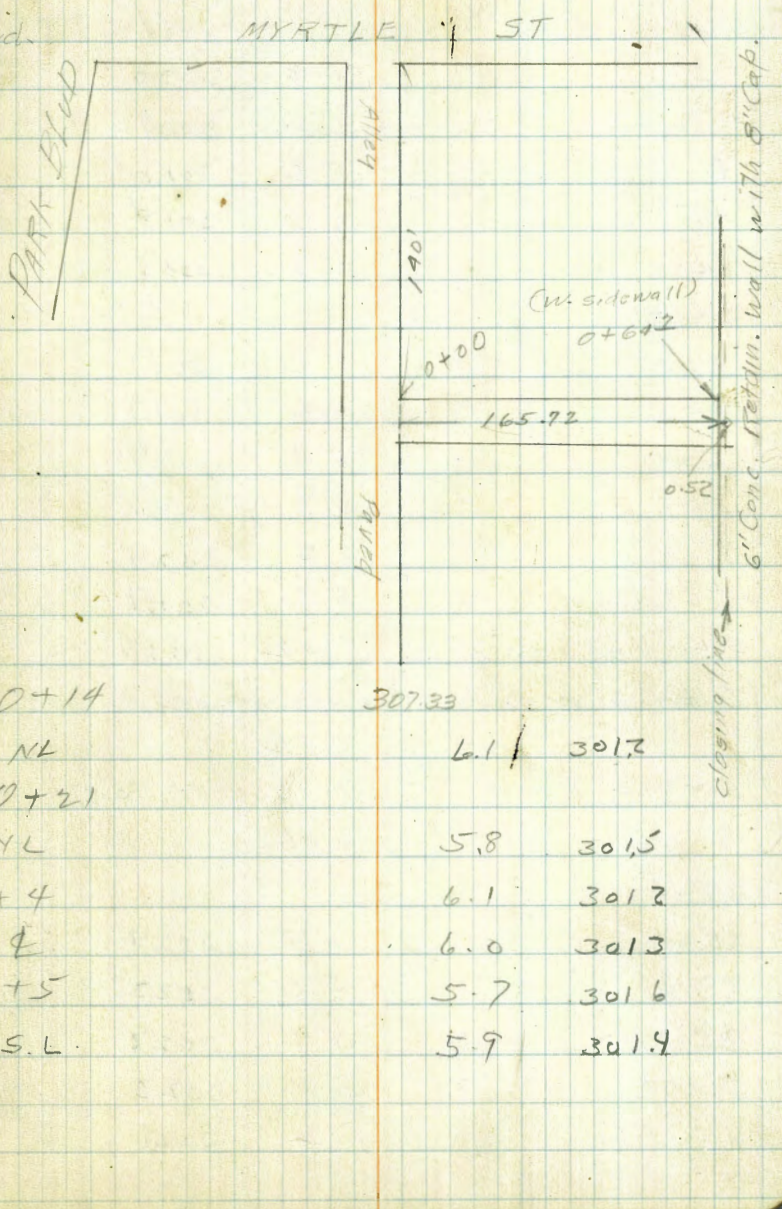 d.
MYRTLE ST
PARK BLVD
Alley
140'
(W. sidewall)
0+64.2
0+00
165.72
0.52
6" Conc. Retain. wall with 8" Cap.
Paved
closing line
0+14 307.33
NL 6.1 301.2
0+21
NL 5.8 301.5
+4 6.1 301.2
℄ 6.0 301.3
+5 5.7 301.6
S.L. 5.9 301.4